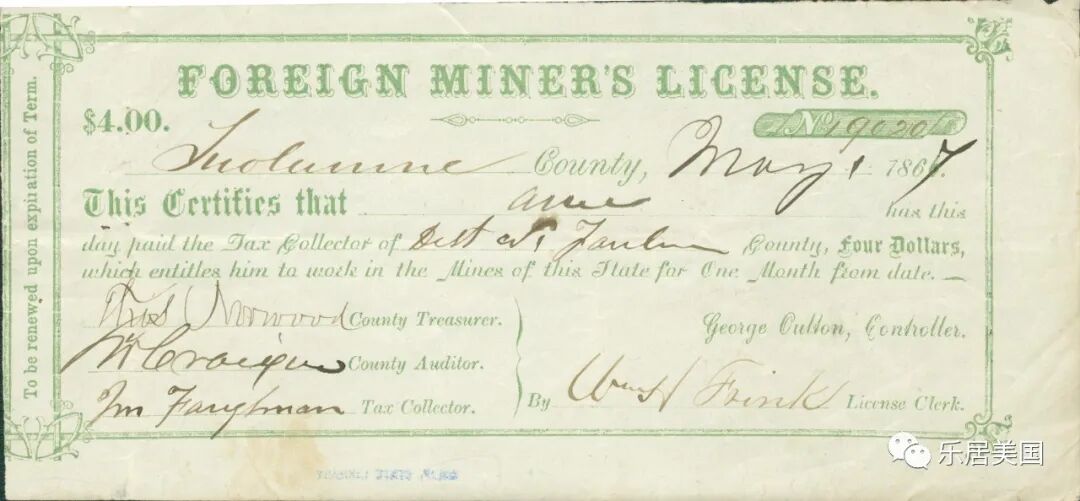 FOREIGN MINER'S LICENSE.
$4.00.
No 19020
Tuolumne County, May 1 1867.
This Certifies that has this
day paid the Tax Collector of County, Four Dollars,
which entitles him to work in the Mines of this State for One Month from date.
Norwood County Treasurer.
County Auditor.
Tax Collector.
George Oulton, Controller.
By Wm H Frink License Clerk.
To be renewed upon expiration of Term.
乐居美国